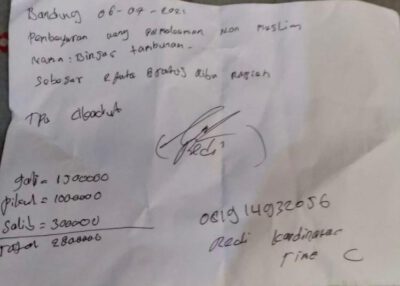 Bandung 06-07-2021
Pembayaran uang pemakaman non muslim
nama: Binsar tambunan.
Sebesar 2 juta 8ratus ribu rupiah
TPU Cikadut
(Redi)
gali = 1500000
pikul = 1000000
salib = 300000
Total 2800000
081914932056
Redi Kordinator
Time C